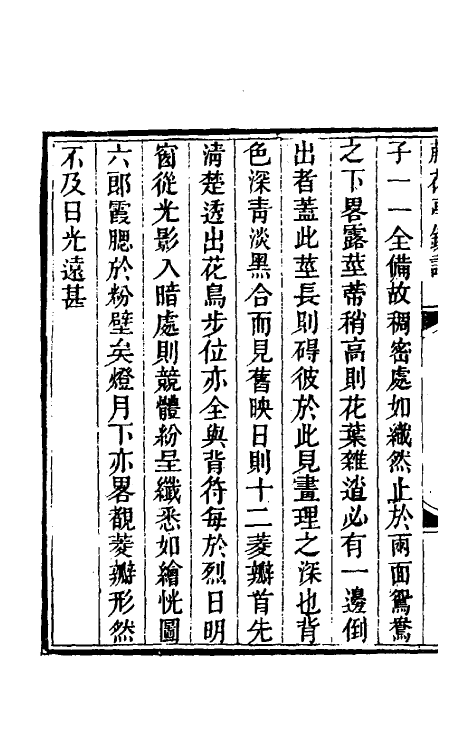 子一一全備故稠密處如織然止於兩面鴛鴦
之下畧露莖蒂稍高則花葉雜遝必有一邊倒
出者蓋此莖長則碍彼於此見畫理之深也背
色深青淡黑合而見舊映日則十二菱瓣首先
清楚透出花鳥步位亦全與背符每於烈日明
窗從光影入暗處則競體紛呈纖悉如繪恍圖
六郎霞腮於粉壁矣燈月下亦畧覩菱瓣形然
不及日光遠甚